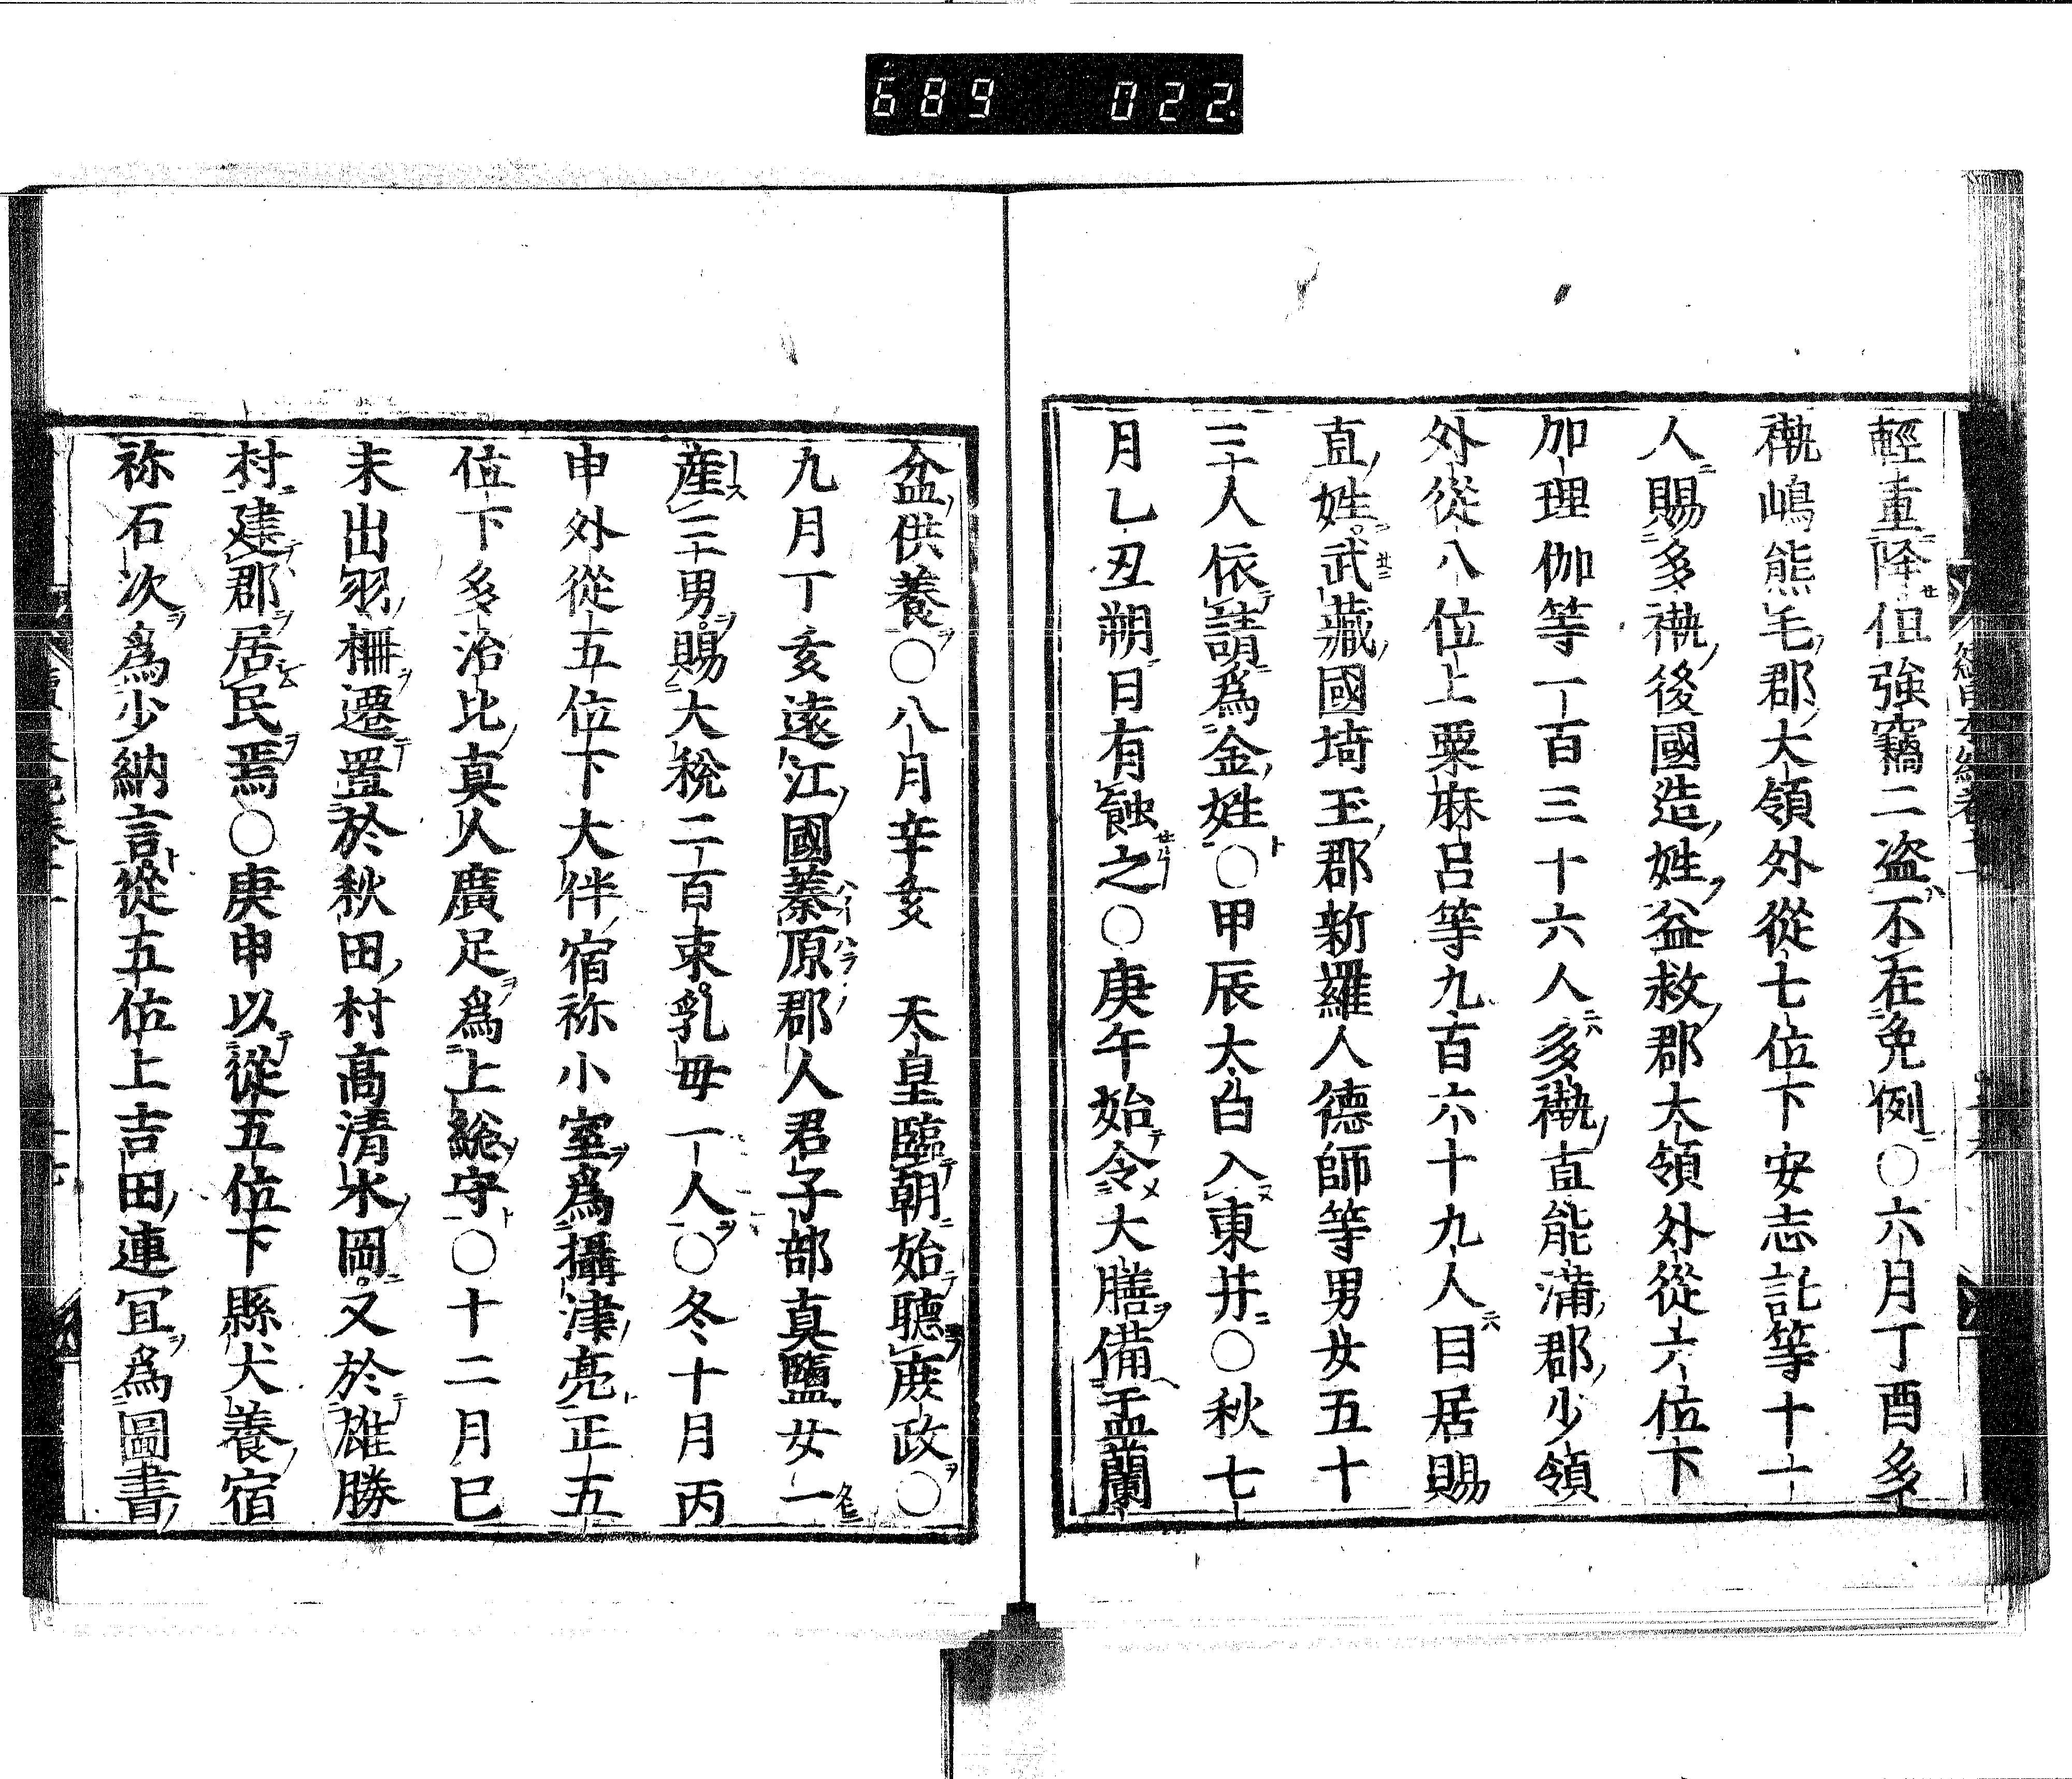 689 022
輕重降但強竊二盗不在免例○六月丁酉多
褹嶋熊毛郡大領外從七位下安志託等十一
人賜多褹後國造姓益救郡大領外從六位下
加理伽等一百三十六人多褹直能滿郡少領
外從八位上粟麻呂等九百六十九人因居賜
直姓武藏國埼玉郡新羅人德師等男女五十
三人依請爲金姓○甲辰太白入東井○秋七
月乙丑朔日有蝕之○庚午始令大膳備盂蘭
盆供養○八月辛亥　天皇臨朝始聽庶政○
九月丁亥遠江國蓁原郡人君子部真鹽女一
産三男賜大稅二百束乳母一人○冬十月丙
申外從五位下大伴宿祢小室爲攝津亮正五
位下多治比真人廣足爲上総守○十二月己
未出羽柵遷置於秋田村高清水岡又於雄勝
村建郡居民焉○庚申以從五位下縣犬養宿
祢石次爲少納言從五位上吉田連冝爲圖書